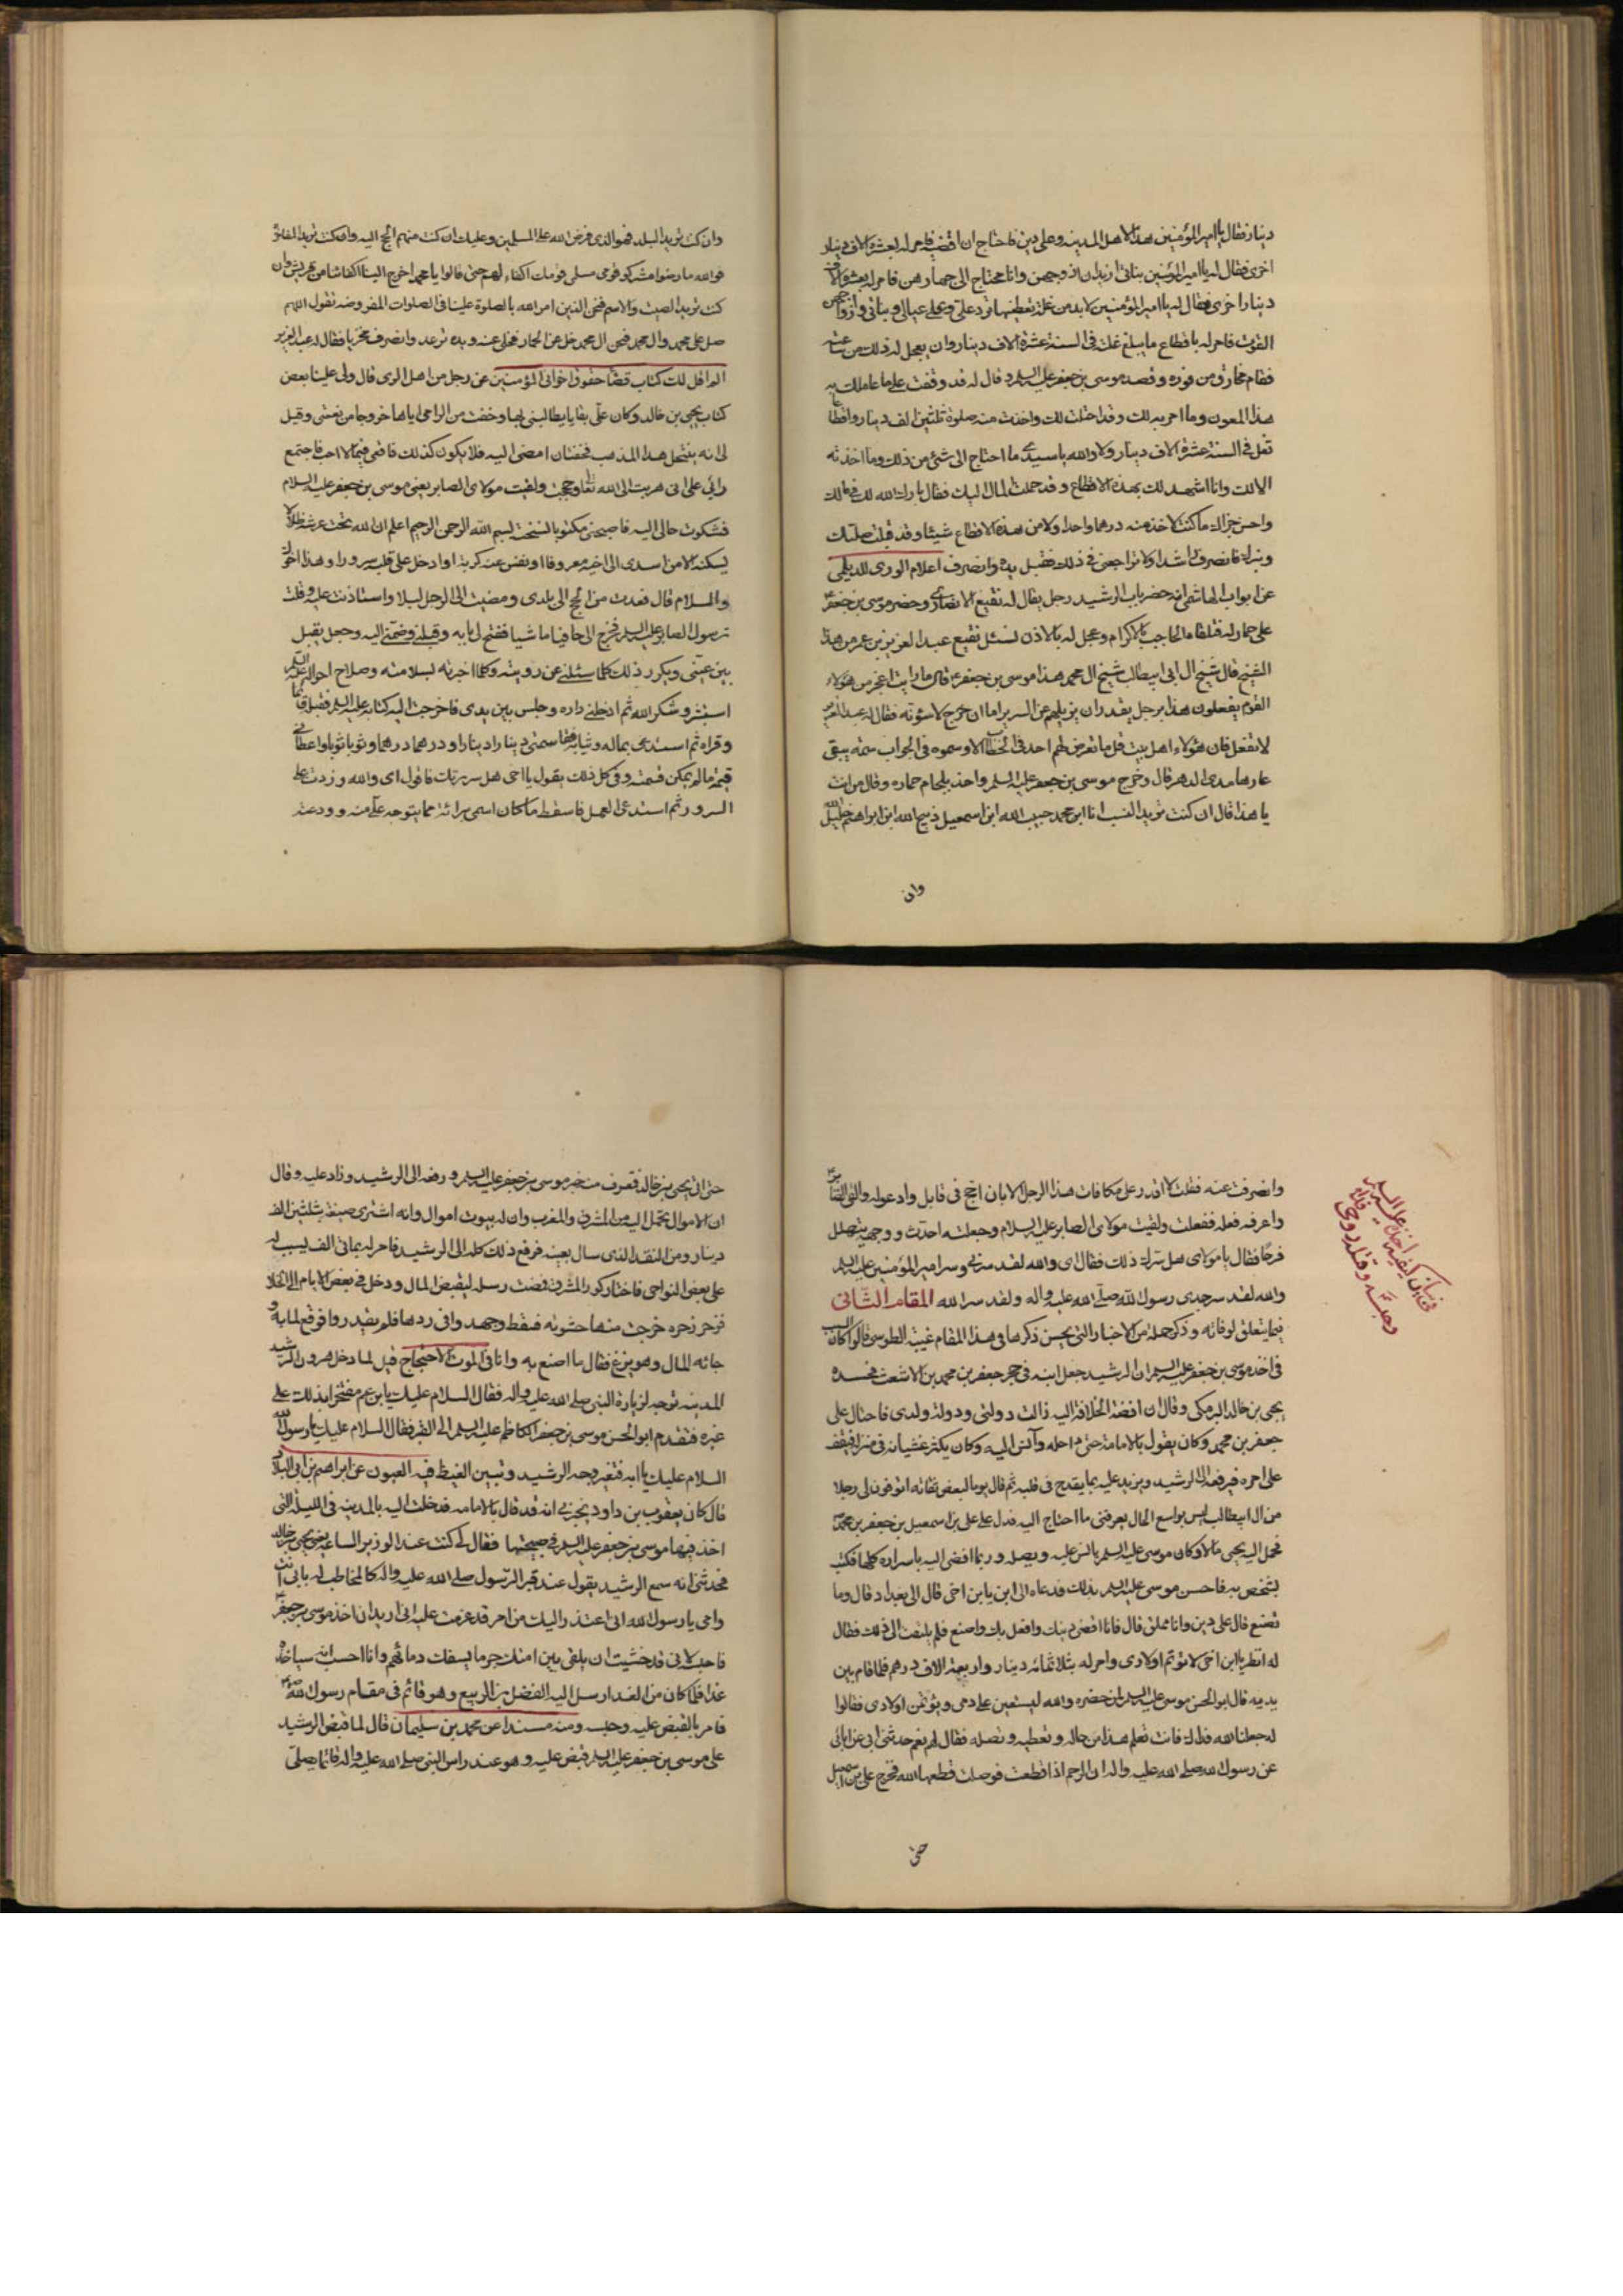 دينار فقال يا امير المؤمنين هذا لاهل المدينه وعلى دين فاحتاج ان اقضيه فامر له بعشرة الاف دينار
اخرى فقال له يا امير المؤمنين بناتى اريد ان ازوجهن وانا محتاج الى جهازهن فامر له بعشرة الاف
دينار اخرى فقال له يا امير المؤمنين لابد من غلة تعطينيها ترد على وعلى عيالى وبناتى وازواجهن
القوت فامر له باقطاع ما يبلغ غلته فى السنة عشرة الاف دينار وان يعجل له ذلك من ساعته
فقام مخارق من فوره وقصد موسى بن جعفر عليه السلم وقال له قد وقفت على ما عاملك به
هذا الملعون وما امر به لك وقد احتلت لك واخذت منه صلوة ثلثين الف دينار واقطاعا
تغل فى السنة عشرة الاف دينار ولا والله يا سيدى ما احتاج الى شئ من ذلك وما اخذته
الا لك وانا اشهد لك بهذه الاقطاع وقد حملت المال اليك فقال بارك الله لك فى مالك
واحسن جزاك ما كنت لاخذ منه درهما واحدا ولا من هذه الاقطاع شيئا وقد قبلت صلتك
وبرك فانصرف راشدا ولا تراجعنى فى ذلك فقبل يده وانصرف اعلام الورى للديلمى
عن ايوب الهاشمى انه حضر باب الرشيد رجل يقال له نفيع الانصارى وحضر موسى بن جعفر
على حمار له فتلقاه الحاجب بالاكرام وعجل له بالاذن فسئل نفيع عبد العزيز بن عمر من هذا
الشيخ قال شيخ ال ابى ابيطالب شيخ ال محمد هذا موسى بن جعفر قال ما رايت اعجز من هؤلاء
القوم يفعلون هذا برجل يقدر ان يزيلهم عن السرير اما ان خرج لاسوئنه فقال له عبد العزيز
لا تفعل فان هؤلاء اهل بيت قل ما تعرض لهم احد فى الخطاب الا وسموه فى الجواب سمة يبقى
عارها مدى الدهر قال وخرج موسى بن جعفر عليه السلم واخذ بلجام حماره وقال من انت
يا هذا قال ان كنت تريد النسب انا ابن محمد حبيب الله ابن اسمعيل ذبيح الله ابن ابراهيم خليل الله
وان
وان كنت تريد البلد فهو الذى فرض الله على المسلمين وعليك ان كنت منهم الحج اليه وان كنت تريد المفاخرة
فوالله ما رضوا مشركو قومى مسلمى قومك اكفاء لهم حتى قالوا يا محمد اخرج الينا اكفاءنا من قريش وان
كنت تريد الصيت والاسم فنحن الذين امر الله بالصلوة علينا فى الصلوات المفروضه تقول اللهم
صل على محمد وال محمد فنحن ال محمد خل عن الحمار فخلى عنه ويده ترعد وانصرف مخزيا فقال له عبد العزيز
الم اقل لك كتاب قضا حقوق اخوانى المؤمنين عن رجل من اهل الرى قال ولى علينا بعض
كتاب يحيى بن خالد وكان على بقايا يطالبنى بها وخفت من الزامى اياها خروجا من نعمتى وقيل
لى انه ينتحل هذا المذهب فخفت ان امضى اليه فلا يكون كذلك فاقع فيما لا احب فاجتمع
رائى على انى هربت الى الله تعالى وحججت ولقيت مولاى الصابر يعنى موسى بن جعفر عليه السلام
فشكوت حالى اليه فاصحبنى مكتوبا نسخته بسم الله الرحمن الرحيم اعلم ان الله تحت عرشه ظلا
لا يسكنه الا من اسدى الى اخيه معروفا او نفس عنه كربة او ادخل على قلبه سرورا وهذا اخوك
والسلام قال فعدت من الحج الى بلدى ومضيت الى الرجل ليلا واستاذنت عليه وقلت
رسول الصابر عليه السلم فخرج الى حافيا ماشيا ففتح لى بابه وقبلنى وضمنى اليه وجعل يقبل
بين عينى ويكرر ذلك كلما سئلنى عن رويته وكلما اخبرته بسلامته وصلاح احواله
استبشر وشكر الله ثم ادخلنى داره وجلس بين يدى فاخرجت اليه كتابه عليه السلم فقبله قائما
وقراه ثم استدعى بماله وثيابه فقاسمنى دينارا دينارا ودرهما درهما وثوبا ثوبا واعطانى
قيمة ما لم يمكن قسمته وفى كل ذلك يقول يا اخى هل سررتك فاقول اى والله وزدت على
السرور ثم استدعى العمل فاسقط ما كان اسمى برائة مما يتوجه على منه وودعته
وانصرفت عنه فقلت لا اقدر على مكافات هذا الرجل الا بان احج فى قابل وادعو له والقى الصابر
واعرفه فعله ففعلت ولقيت مولاى الصابر عليه السلام وجعلت احدثه ووجهه يتهلل
فرحا فقال يا مولاى هل سرك ذلك فقال اى والله لقد سرنى وسر امير المؤمنين عليه السلم
والله لقد سر جدى رسول الله صلى الله عليه واله ولقد سر الله المقام الثانى
فيما يتعلق لوفاته وذكر جملة من الاخبار والتى يحسن ذكرها فى هذا المقام غيبة الطوسى قالوا كان السبب
فى اخذ موسى بن جعفر عليه السلم ان الرشيد جعل ابنه فى حجر جعفر بن محمد بن الاشعث فحسده
يحيى بن خالد البرمكى وقال ان افضت الخلافة اليه زالت دولتى ودولة ولدى فاحتال على
جعفر بن محمد وكان يقول بالامامة حتى داخله وآنس اليه وكان يكثر غشيانه فى منزله فيقف
على امره فيرفعه الى الرشيد ويزيد عليه بما يقدح فى قلبه ثم قال يوما لبعض ثقاته اتوقون لى رجلا
من ال ابيطالب ليس بواسع الحال يعرفنى ما احتاج اليه فدل على على بن اسمعيل بن جعفر بن محمد
فحمل اليه يحيى مالا وكان موسى عليه السلم يانس عليه ويصله وربما افضى اليه باسراره كلها فكتب
ليشخص به فاحسن موسى عليه السلم بذلك فدعاه الى اين يابن اخى قال الى بغداد قال وما
تصنع قال على دين وانا مملق قال فانا اقضى دينك وافعل بك واصنع فلم يلتفت الى ذلك فقال
له انظر يا ابن اخى لا توتم اولادى وامر له بثلاثمائه دينار واربعة الاف درهم فلما قام بين
يديه قال ابو الحسن موسى عليه السلم لمن حضره والله ليسعين على دمى ويوتمن اولادى فقالوا
له جعلنا الله فداك فانت تعلم هذا من حاله وتعطيه وتصله فقال لهم نعم حدثنى ابى عن ابائى
عن رسول الله صلى الله عليه واله ان الرحم اذا قطعت فوصلت قطعها الله فخرج على بن اسمعيل
حتى
فى بيان كيفية اخذه عليه السلم
وحبسه وقتله روحى فداه
حتى اتى يحيى بن خالد فتعرف منه خبر موسى بن جعفر عليه السلم ورفعه الى الرشيد وزاد عليه وقال
ان الاموال تحمل اليه من المشرق والمغرب وان له بيوت اموال وانه اشترى ضيعة بثلثين الف
دينار ومن النقد الذى سال بعينه فرفع ذلك كله الى الرشيد فامر له بمائتى الف يسبب له
على بعض النواحى فاختار كور المشرق فمضت رسله ليقبض المال ودخل فى بعض الايام الى الخلا
فزحر زحره خرجت منها حشوته فسقط وجهد وا فى ردها فلم يقدروا فوقع لما به و
جائه المال وهو ينزع فقال ما اصنع به وانا فى الموت الاحتجاج قيل لما دخل هرون الرشيد
المدينه توجه لزيارة النبى صلى الله عليه واله فقال السلام عليك يابن عم مفتخرا بذلك على
غيره فتقدم ابو الحسن موسى بن جعفر الكاظم عليه السلم الى القبر فقال السلام عليك يا رسول الله
السلام عليك يا ابه فتغير وجه الرشيد وتبين الغيظ فيه العيون عن ابراهيم بن ابى البلاد
قال كان يعقوب بن داود يخبرنى انه قد قال بالامامه فدخلت اليه بالمدينه فى الليلة التى
اخذ فيها موسى بن جعفر عليه السلم فى صبيحتها فقال لى كنت عند الوزير الساعه يعنى يحيى بن خالد
فحدثنى انه سمع الرشيد يقول عند قبر الرسول صلى الله عليه واله كالمخاطب له بابى انت
وامى يا رسول الله انى اعتذر اليك من امر قد عزمت عليه انى اريد ان اخذ موسى بن جعفر
فاحبسه لانى قد خشيت ان يلقى بين امتك حربا يسفك دمائهم وانا احسب انه سياخذه
غدا فلما كان من الغد ارسل اليه الفضل بن الربيع وهو قائم فى مقام رسول الله
فامر بالقبض عليه وحبسه ومنه مسندا عن محمد بن سليمان قال لما قبض الرشيد
على موسى بن جعفر عليه السلم قبض عليه وهو عند راس النبى صلى الله عليه واله قائما يصلى